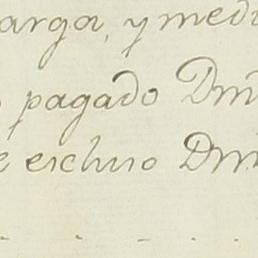 arga, y medi
pagado Dm
e escluso Dm